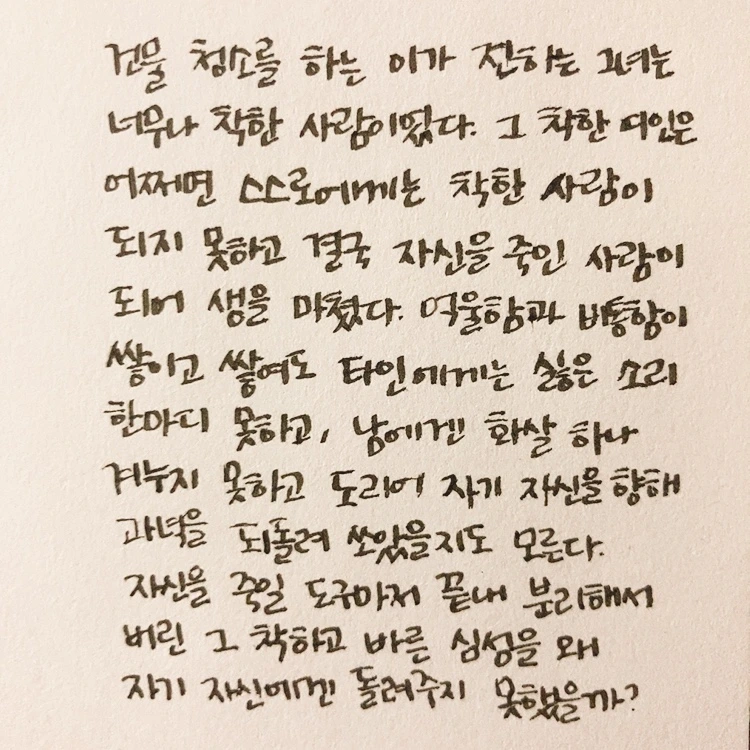 건물 청소를 하는 이가 전하는 그녀는
너무나 착한 사람이었다. 그 착한 여인은
어쩌면 스스로에게는 착한 사람이
되지 못하고 결국 자신을 죽인 사람이
되어 생을 마쳤다. 억울함과 비통함이
쌓이고 쌓여도 타인에게는 싫은 소리
한마디 못하고, 남에겐 화살 하나
겨누지 못하고 도리어 자기 자신을 향해
과녁을 되돌려 쏘았을지도 모른다.
자신을 죽일 도구마저 끝내 분리해서
버린 그 착하고 바른 심성을 왜
자기 자신에겐 돌려주지 못했을까?